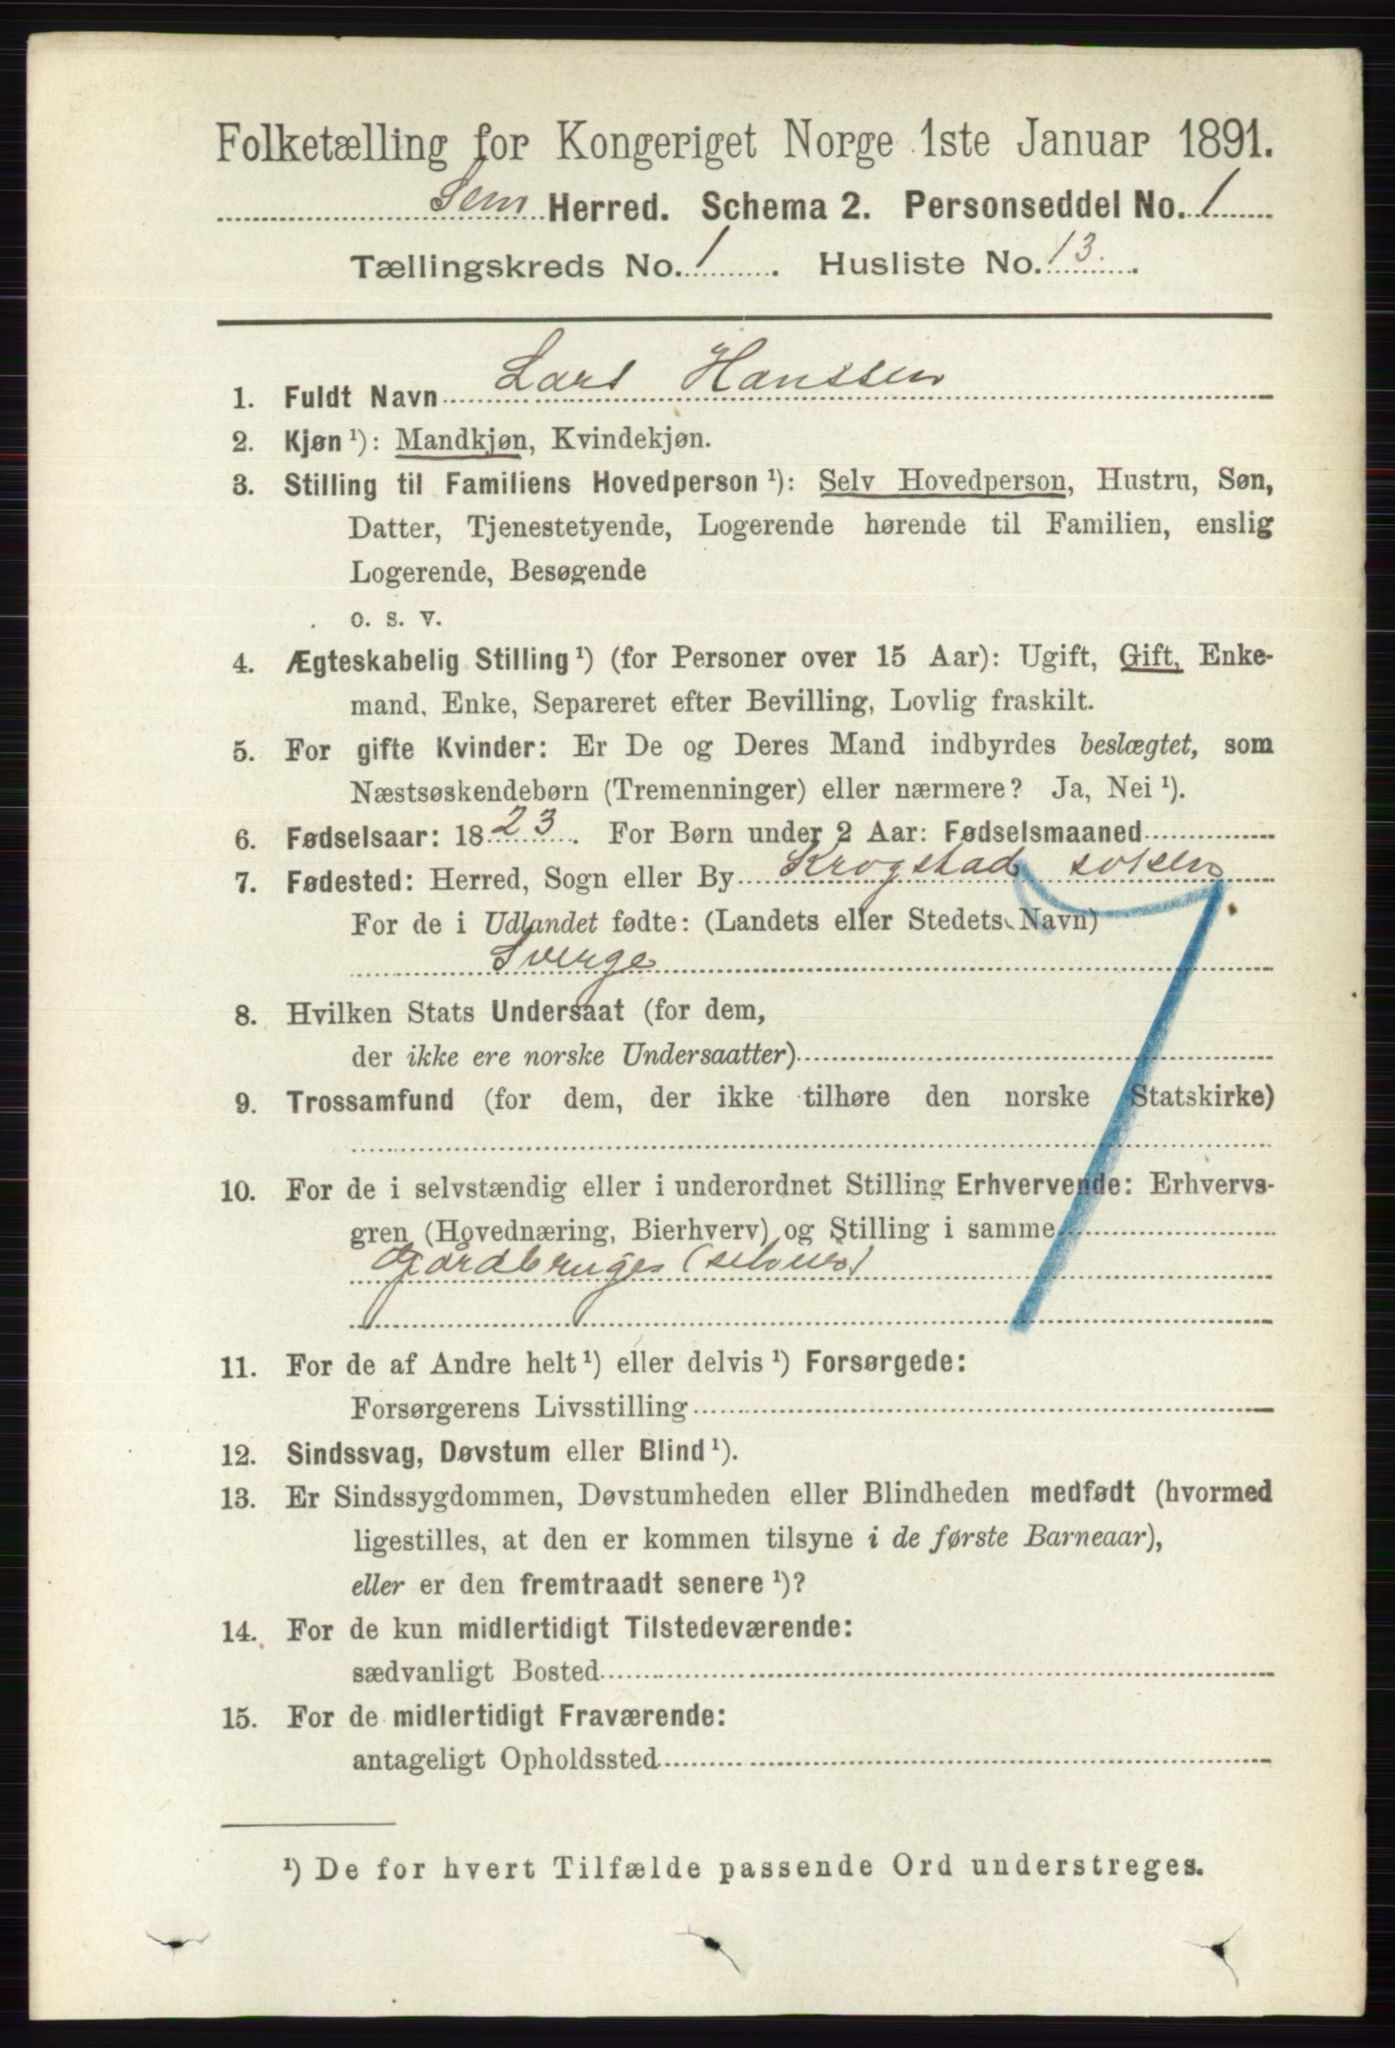 Folketælling for Kongeriget Norge 1ste Januar 1891.
Sem Herred. Schema 2. Personseddel No. 1
Tællingskreds No. 1. Husliste No. 13.
1. Fuldt Navn Lars Hanssen
2. Kjøn ¹): Mandkjøn, Kvindekjøn.
3. Stilling til Familiens Hovedperson ¹): Selv Hovedperson, Hustru, Søn,
Datter, Tjenestetyende, Logerende hørende til Familien, enslig
Logerende, Besøgende
o. s. v.
4. Ægteskabelig Stilling ¹) (for Personer over 15 Aar): Ugift, Gift, Enke-
mand, Enke, Separeret efter Bevilling, Lovlig fraskilt.
5. For gifte Kvinder: Er De og Deres Mand indbyrdes beslægtet, som
Næstsøskendebørn (Tremenninger) eller nærmere? Ja, Nei ¹).
6. Fødselsaar: 1823. For Børn under 2 Aar: Fødselsmaaned
7. Fødested: Herred, Sogn eller By Krogstad soken
For de i Udlandet fødte: (Landets eller Stedets Navn)
Sverge
8. Hvilken Stats Undersaat (for dem,
der ikke ere norske Undersaatter)
9. Trossamfund (for dem, der ikke tilhøre den norske Statskirke)
10. For de i selvstændig eller i underordnet Stilling Erhvervende: Erhvervs-
gren (Hovednæring, Bierhverv) og Stilling i samme
Gårdbruger (selveier)
11. For de af Andre helt ¹) eller delvis ¹) Forsørgede:
Forsørgerens Livsstilling
12. Sindssvag, Døvstum eller Blind ¹).
13. Er Sindssygdommen, Døvstumheden eller Blindheden medfødt (hvormed
ligestilles, at den er kommen tilsyne i de første Barneaar),
eller er den fremtraadt senere ¹)?
14. For de kun midlertidigt Tilstedeværende:
sædvanligt Bosted
15. For de midlertidigt Fraværende:
antageligt Opholdssted
¹) De for hvert Tilfælde passende Ord understreges.